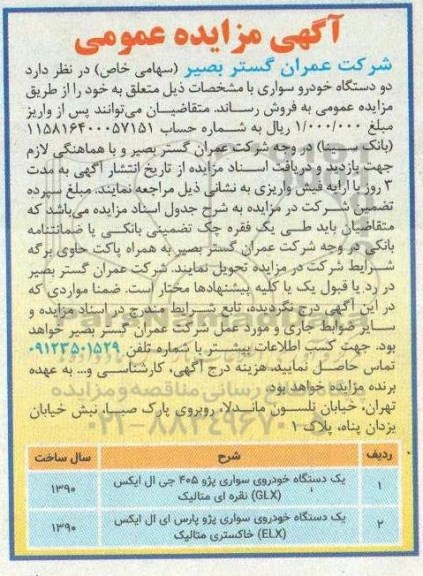 آگهی مزایده عمومی
شرکت عمران گستر بصیر (سهامی خاص) در نظر دارد
دو دستگاه خودرو سواری با مشخصات ذیل متعلق به خود را از طریق
مزایده عمومی به فروش رساند. متقاضیان می‌توانند پس از واریز
مبلغ ۱/۰۰۰/۰۰۰ ریال به شماره حساب ۱۱۵۸۱۶۴۰۰۰۵۷۱۵۱
(بانک سینا) در وجه شرکت عمران گستر بصیر و با هماهنگی لازم
جهت بازدید و دریافت اسناد مزایده از تاریخ انتشار آگهی به مدت
۳ روز با ارایه فیش واریزی به نشانی ذیل مراجعه نمایند. مبلغ سپرده
تضمین شرکت در مزایده به شرح جدول اسناد مزایده می‌باشد که
متقاضیان باید طی یک فقره چک تضمینی بانکی یا ضمانتنامه
بانکی در وجه شرکت عمران گستر بصیر به همراه پاکت حاوی برگه
شرایط شرکت در مزایده تحویل نمایند. شرکت عمران گستر بصیر
در رد یا قبول یک یا کلیه پیشنهادها مختار است. ضمنا مواردی که
در این آگهی درج نگردیده، تابع شرایط مندرج در اسناد مزایده و
سایر ضوابط جاری و مورد عمل شرکت عمران گستر بصیر خواهد
بود. جهت کسب اطلاعات بیشتر با شماره تلفن ۰۹۱۲۳۵۰۱۵۲۹
تماس حاصل نمایید. هزینه درج آگهی، کارشناسی و... به عهده
برنده مزایده خواهد بود.
تهران: خیابان نلسون ماندلا، روبروی پارک صبا، نبش خیابان
یزدان پناه، پلاک ۱
ردیف شرح سال ساخت
۱ یک دستگاه خودروی سواری پژو ۴۰۵ جی ال ایکس ۱۳۹۰
(GLX) نقره ای متالیک
۲ یک دستگاه خودروی سواری پژو پارس ای ال ایکس ۱۳۹۰
(ELX) خاکستری متالیک
۰۲۱-۸۸۳۴۹۶۷۰